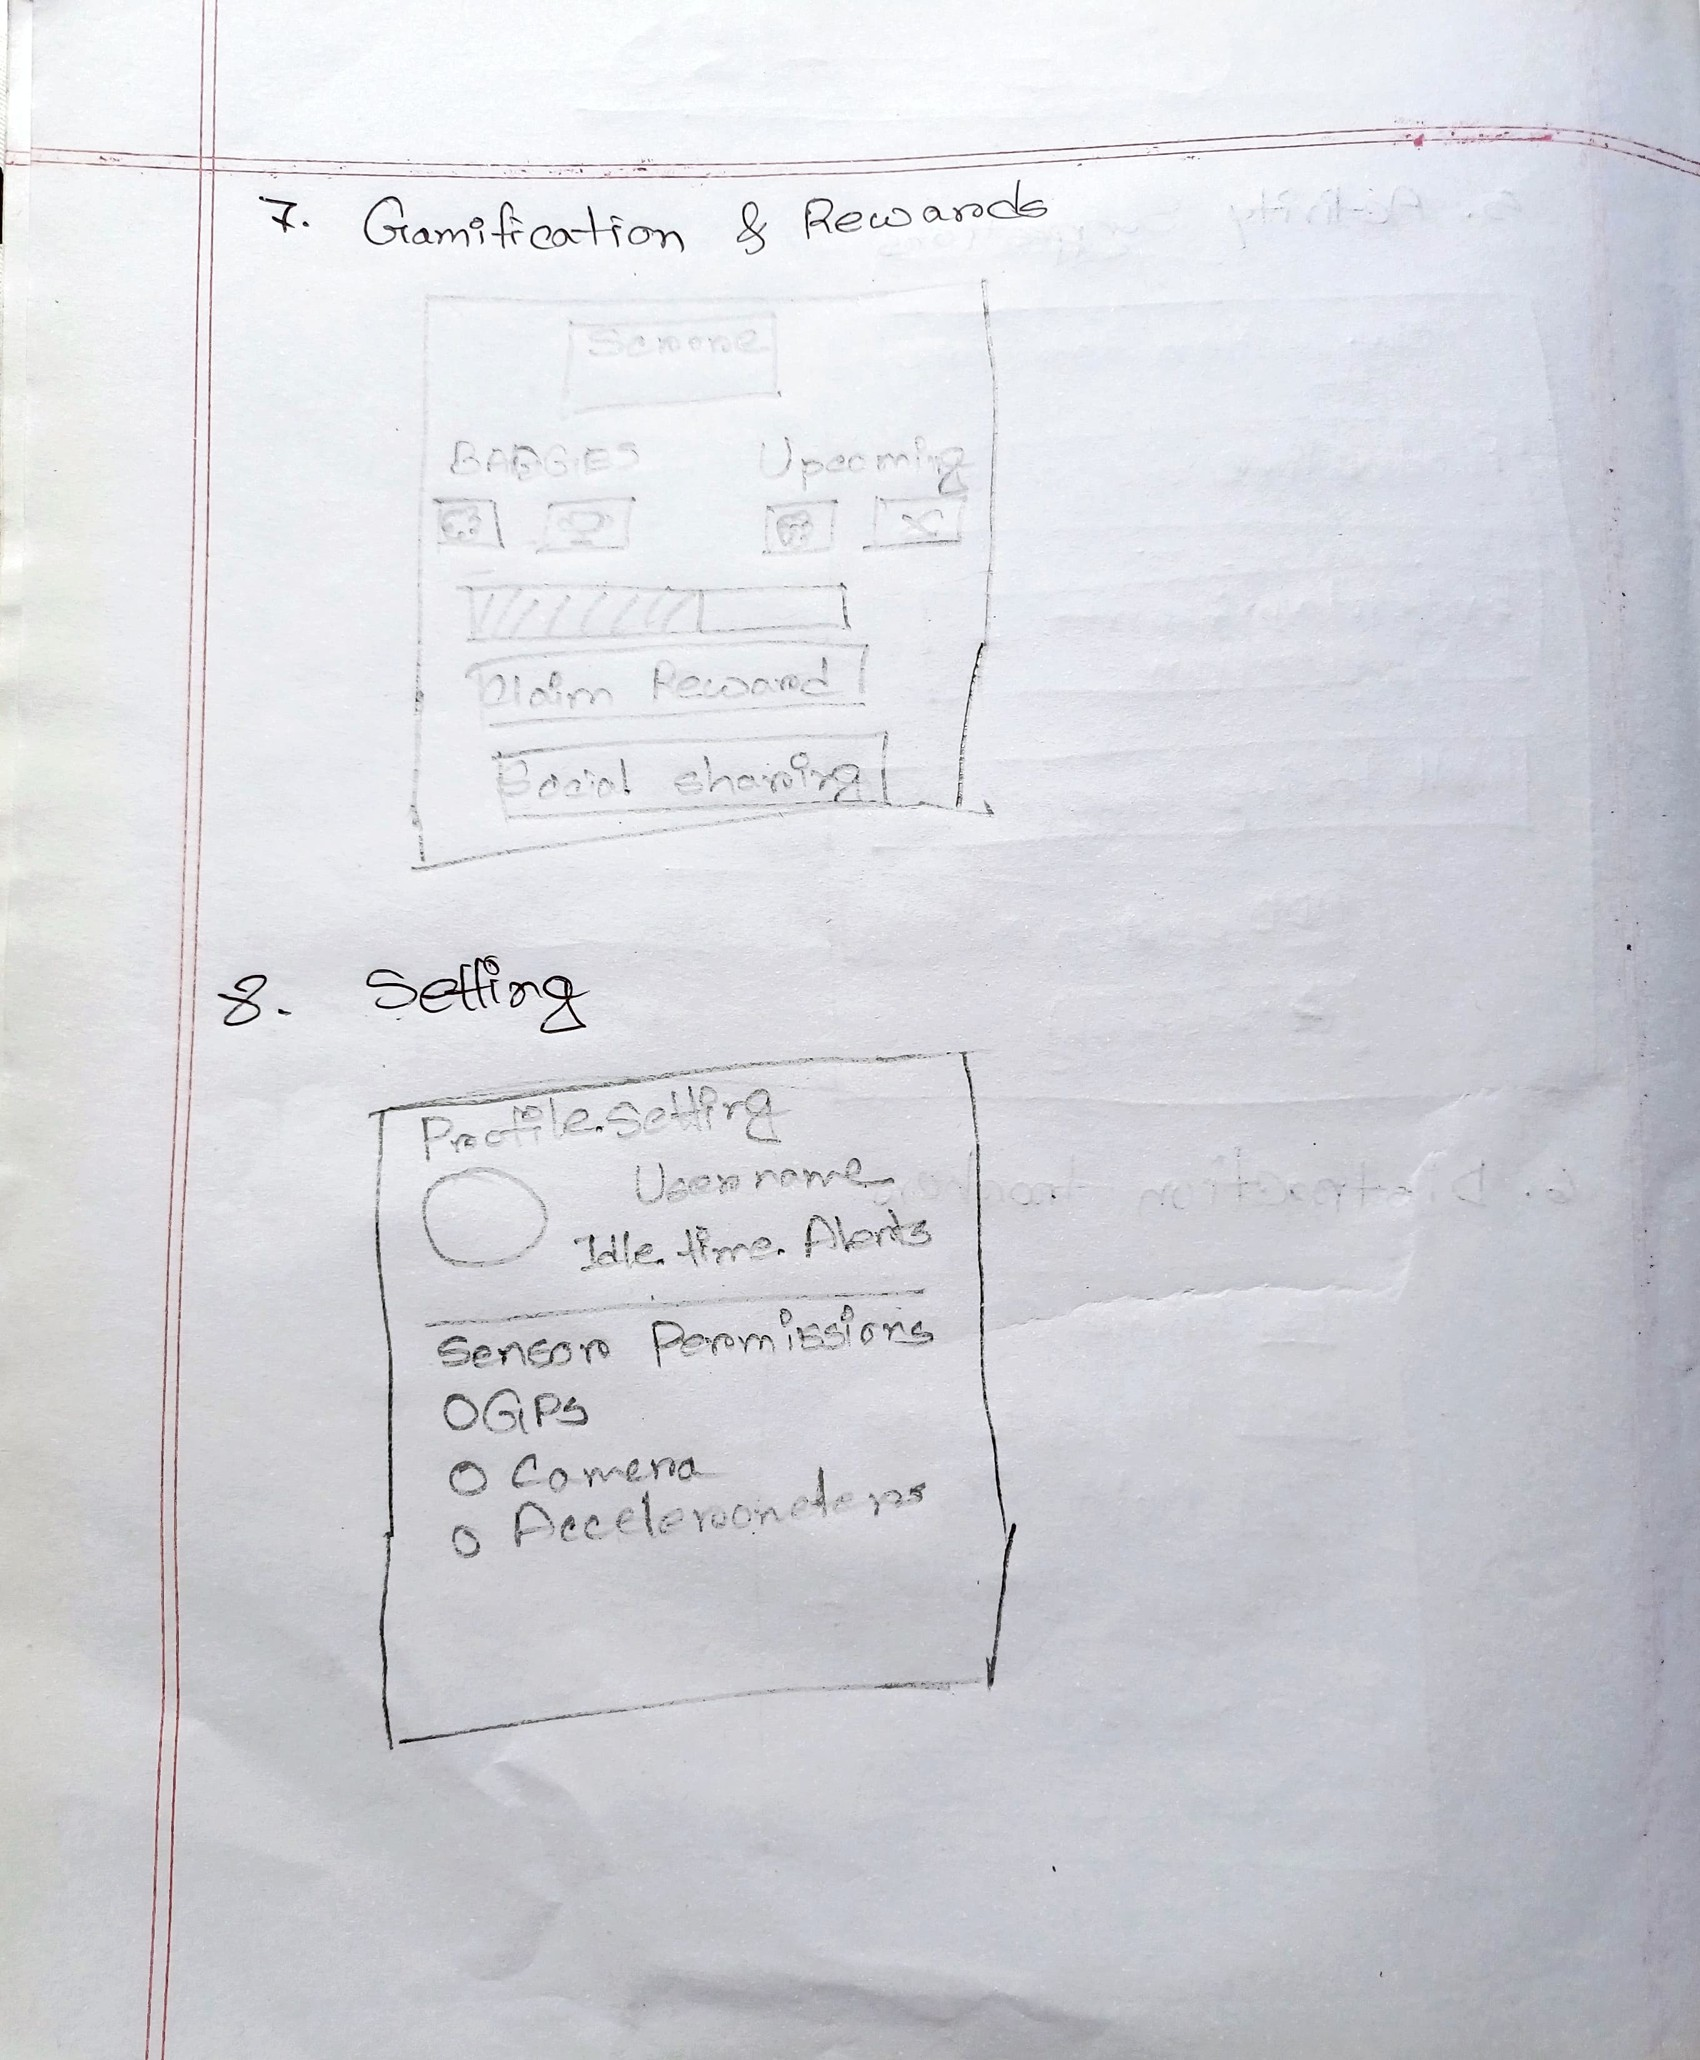 7. Gamification & Rewards
BAGGIES Upcoming
Claim Reward
Social sharing
8. Setting
Profile Setting
User name
Idle time Alerts
Sensor Permissions
GPS
Camera
Accelerometers